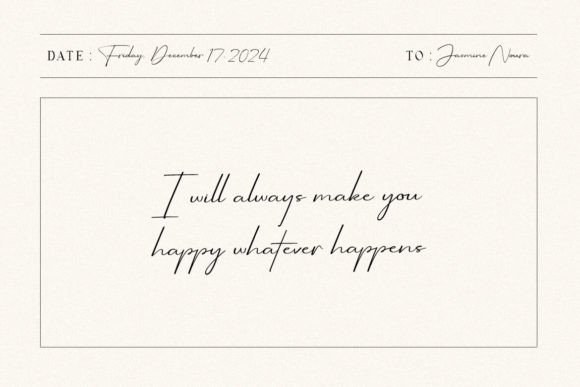 DATE : Friday, December 17 2024
TO : Jasmine Noura
I will always make you
happy whatever happens